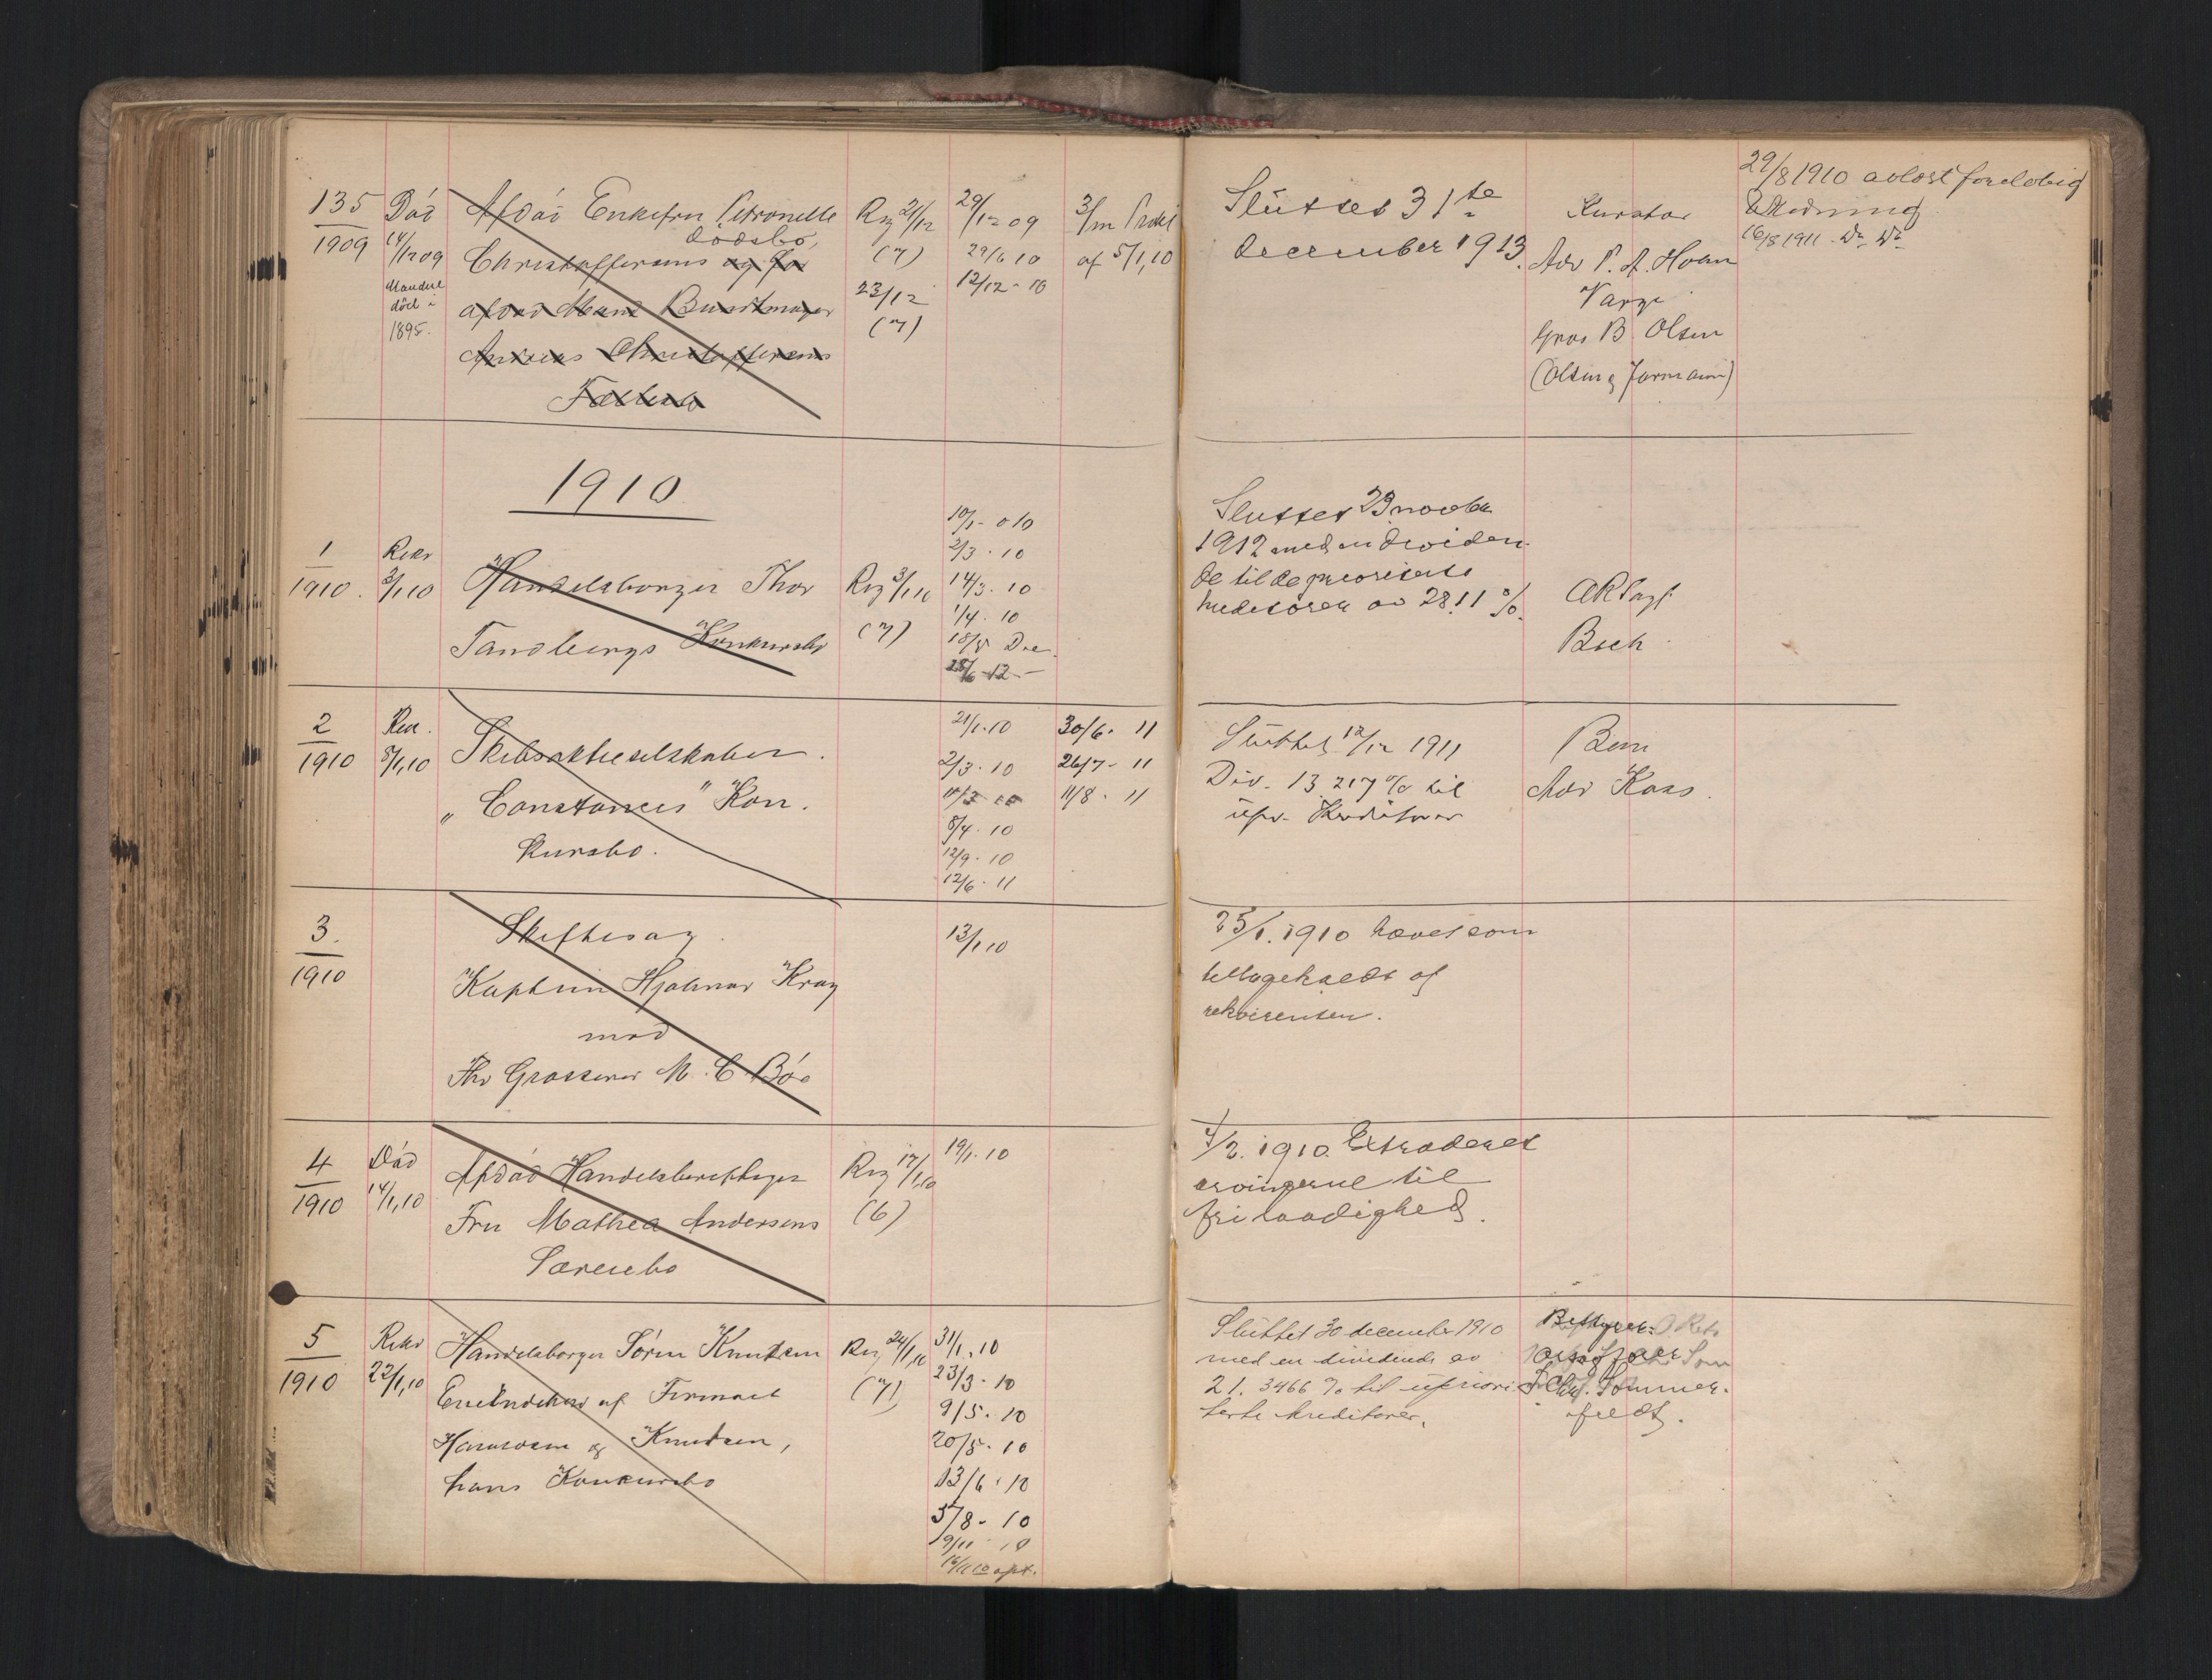 135
1909
Død
14/12 09
Manden
død i
1895.
Afdøde Enkefru Petronelle
dødsbo,
Christoffersens og før
afdød Mand
Andreas Christoffersens
Fællesbo
Rg 21/12
(7)
23/12
(7)
29/12 09
29/6 10
12/12 - 10
3/m Prokl
af 5/1,10
Sluttet 31te
december 1913.
Kurator
Adv P. A. Holm
Varge
Gros B. Olsen
(Olsen & Jormann)
29/8 1910 avlagt foreløbig
16/8 1911 - Do Do
1910
1
1910.
Rekv
3/1 10
Handelsborger Thor
Tandbergs Konkursbo
Rg 3/1 10
(7)
10/1 - 010
2/3 . 10
14/3 . 10
1/4 . 10
18/5 Dec.
28/6 - 12 -
Sluttet 23 novbr
1912 med en dividen-
de til de prioriterte
kreditorer av 28.11 %.
Bech
2
1910
Rek.
8/1,10
Skibsaktieselskabet
"Constances" Kon.
kursbo.
21/1.10
2/3 . 10
8/4 . 10
12/9 . 10
12/6 . 11
30/6 . 11
26/7 - 11
11/8 . 11
Sluttet 12/12 1911
Div. 13.217 % til
upr. Kreditorer
Adv Kaas.
3.
1910
Skiftesag
Kaptein Hjalmar Krag
mod
Fhv Grosserer M. C. Bøe
13/1 10
25/1.1910 hævet som
tilbagekaldt af
rekvirenten.
4
1910
Død
14/1,10
Afdød Handelsberettiget
Fru Mathea Andersens
Særeiebo
Rg 17/1,10
(6)
19/1.10
4/2.1910 Extraderet
arvingerne til
fri raadighed.
5
1910
Rekv
22/1,10
Handelsborger Søren Knudsen
Eneindehav af Firmaet
Hansosen og Knudsen,
hans Konkursbo
Rg 24/1,10
(7)
31/1.10
23/3 . 10
9/5 . 10
20/5 . 10
13/6 . 10
5/8 - 10
9/11 10
Sluttet 30 december 1910
med en dividende av
21.3466 % til upriori-
terte kreditorer.
Bestyrer: O.Rets
Chr. Sommer-
feldt.